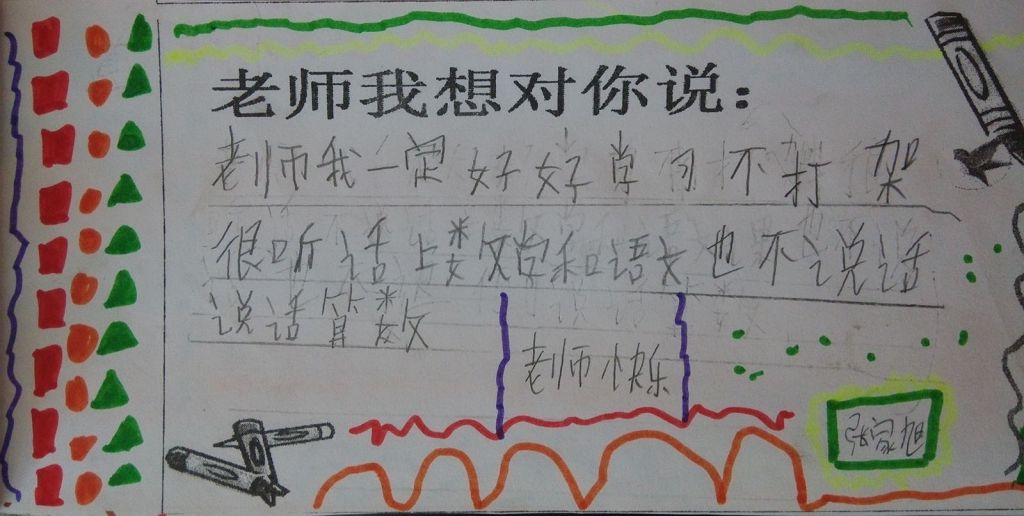 老师我想对你说：
老师我一定好好学习不打架
很听话上数学和语文也不说话
说话算数
老师快乐
张家旭